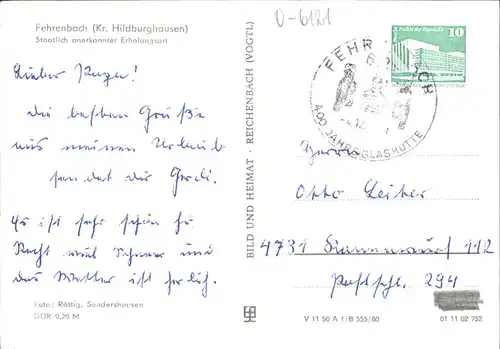 Fehrenbach (Kr. Hildburghausen)
Staatlich anerkannter Erholungsort
0-6121
Lieber
die besten Grüße
aus meinen Urlaub
sendet dir Gerdi.
Es ist sehr schön hi
Recht viel Schnee und
das Wetter ist herlich.
Foto: Röttig, Sondershausen
DDR 0,20 M
BILD UND HEIMAT · REICHENBACH (VOGTL)
FEHRENBACH
400 JAHRE GLASHÜTTE
Palast der Republik
10
Herrn
Otto
4731
112
Postschl. 294
V 11 50 A 1/B 555/80
01 11 02 752